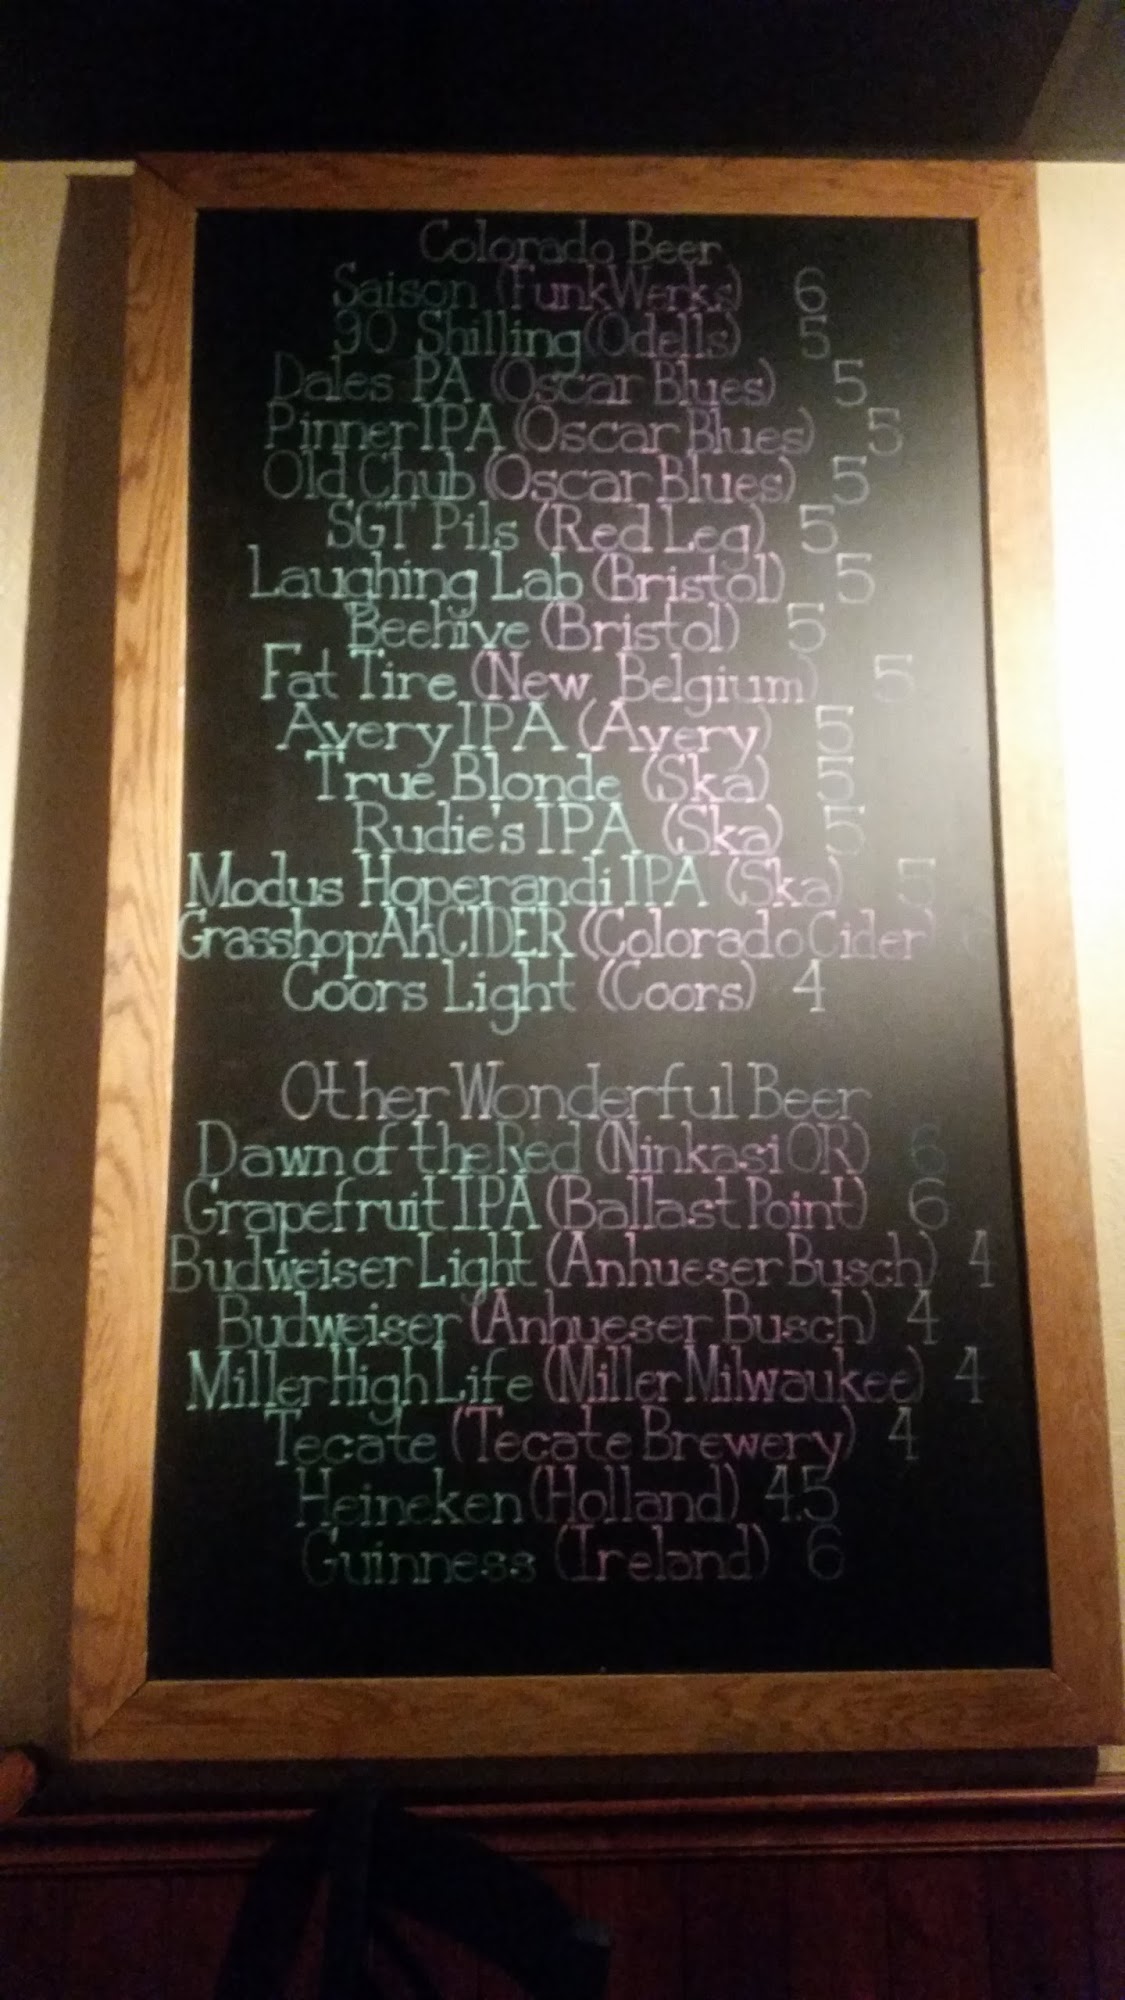 Colorado Beer
Saison (FunkWerks) 6
90 Shilling (Odells) 5
Dales PA (Oscar Blues) 5
Pinner IPA (Oscar Blues) 5
Old Chub (Oscar Blues) 5
SGT Pils (Red Leg) 5
Laughing Lab (Bristol) 5
Beehive (Bristol) 5
Fat Tire (New Belgium) 5
Avery IPA (Avery) 5
True Blonde (Ska) 5
Rudie's IPA (Ska) 5
Modus Hoperandi IPA (Ska) 5
Grasshop:Ah CIDER (Colorado Cider)
Coors Light (Coors) 4
Other Wonderful Beer
Dawn of the Red (Ninkasi OR) 6
Grapefruit IPA (Ballast Point) 6
Budweiser Light (Anhueser Busch) 4
Budweiser (Anhueser Busch) 4
Miller High Life (Miller Milwaukee) 4
Tecate (Tecate Brewery) 4
Heineken (Holland) 4.5
Guinness (Ireland) 6